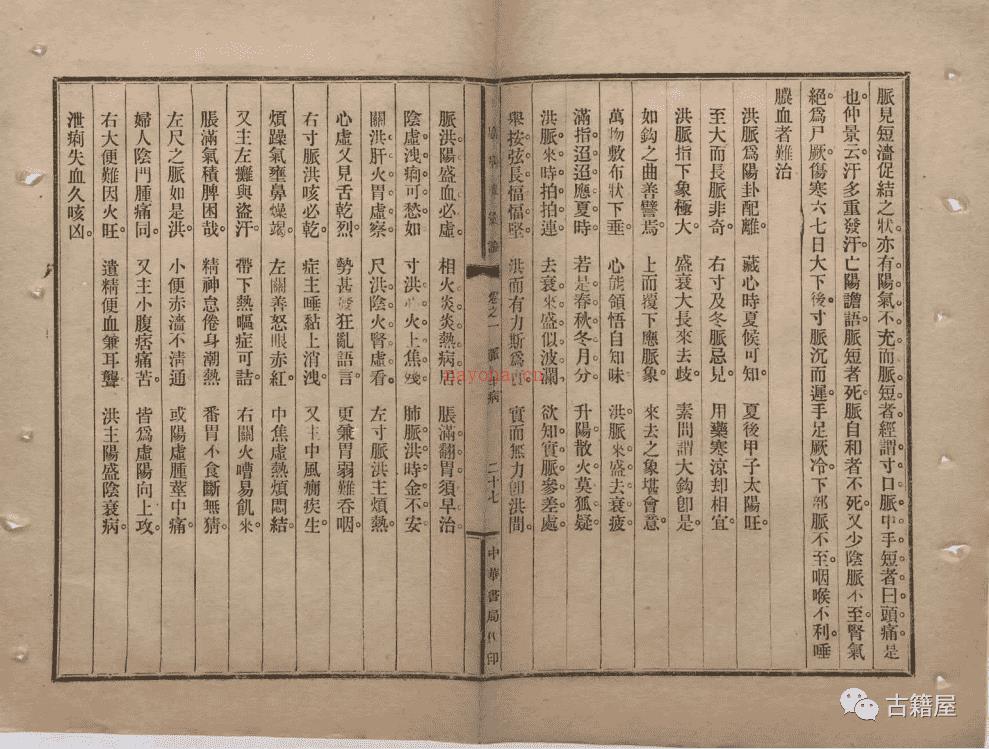 脈見短濇促結之狀亦有陽氣不充而脈短者經謂寸口脈中手短者曰頭痛是
也仲景云汗多重發汗亡陽譫語脈短者死脈自和者不死又少陰脈不至腎氣
絕爲尸厥傷寒六七日大下後寸脈沉而遲手足厥冷下部脈不至咽喉不利唾
膿血者難治
洪脈爲陽卦配離。 藏心時夏候可知 夏後甲子太陽旺。
至大而長脈非奇 右寸及冬脈忌見 用藥寒涼却相宜。
洪脈指下象極大 盛衰大長來去歧 素問謂大鈎卽是。
如鈎之曲善譬焉 上而覆下應脈象 來去之象堪會意
萬物敷布狀下垂 心能領悟自知味 洪脈來盛去衰疲
滿指滔滔應夏時 若是春秋冬月分 升陽散火莫狐疑
洪脈來時拍拍連 去衰來盛似波瀾。 欲知實脈參差處
舉按弦長愊愊堅 洪而有力斯爲 實而無力卽洪間
卷之一 脈 病 二十七 中華書局代印
脈洪陽盛血必虛 相火炎炎熱病居 脹滿翻胃須早治
陰虛洩痢可愁如 寸洪心火上焦殘 肺脈洪時金不安
關洪肝火胃虛察 尺洪陰火腎虛看。 左寸脈洪主煩熱
心虛又見舌乾烈 勢甚發狂亂語言 更兼胃弱難吞咽
右寸脈洪咳必乾 症主唾黏上消洩 又主中風癇疾生
煩躁氣壅鼻燥竭。 左關善怒眼赤紅。 中焦虛熱煩悶結
又主左癱與盜汗 帶下熱嘔症可詰 右關火嘈易飢來
脹滿氣積脾困哉 精神怠倦身潮熱 番胃不食斷無猜
左尺之脈如是洪。 小便赤濇不清通 或陽虛腫莖中痛
婦人陰門腫痛同。 又主小腹痞痛苦。 皆爲虛陽向上攻
右大便難因火旺。 遺精便血兼耳聾 洪主陽盛陰衰病
泄痢失血久咳凶。
nayona.cn
古籍屋